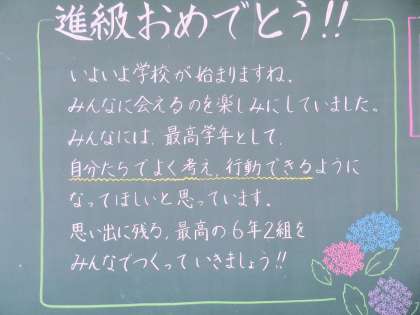 進級おめでとう!!
いよいよ学校が始まりますね。
みんなに会えるのを楽しみにしていました。
みんなには、最高学年として、
自分たちでよく考え、行動できるように
なってほしいと思っています。
思い出に残る、最高の6年2組を
みんなでつくっていきましょう!!